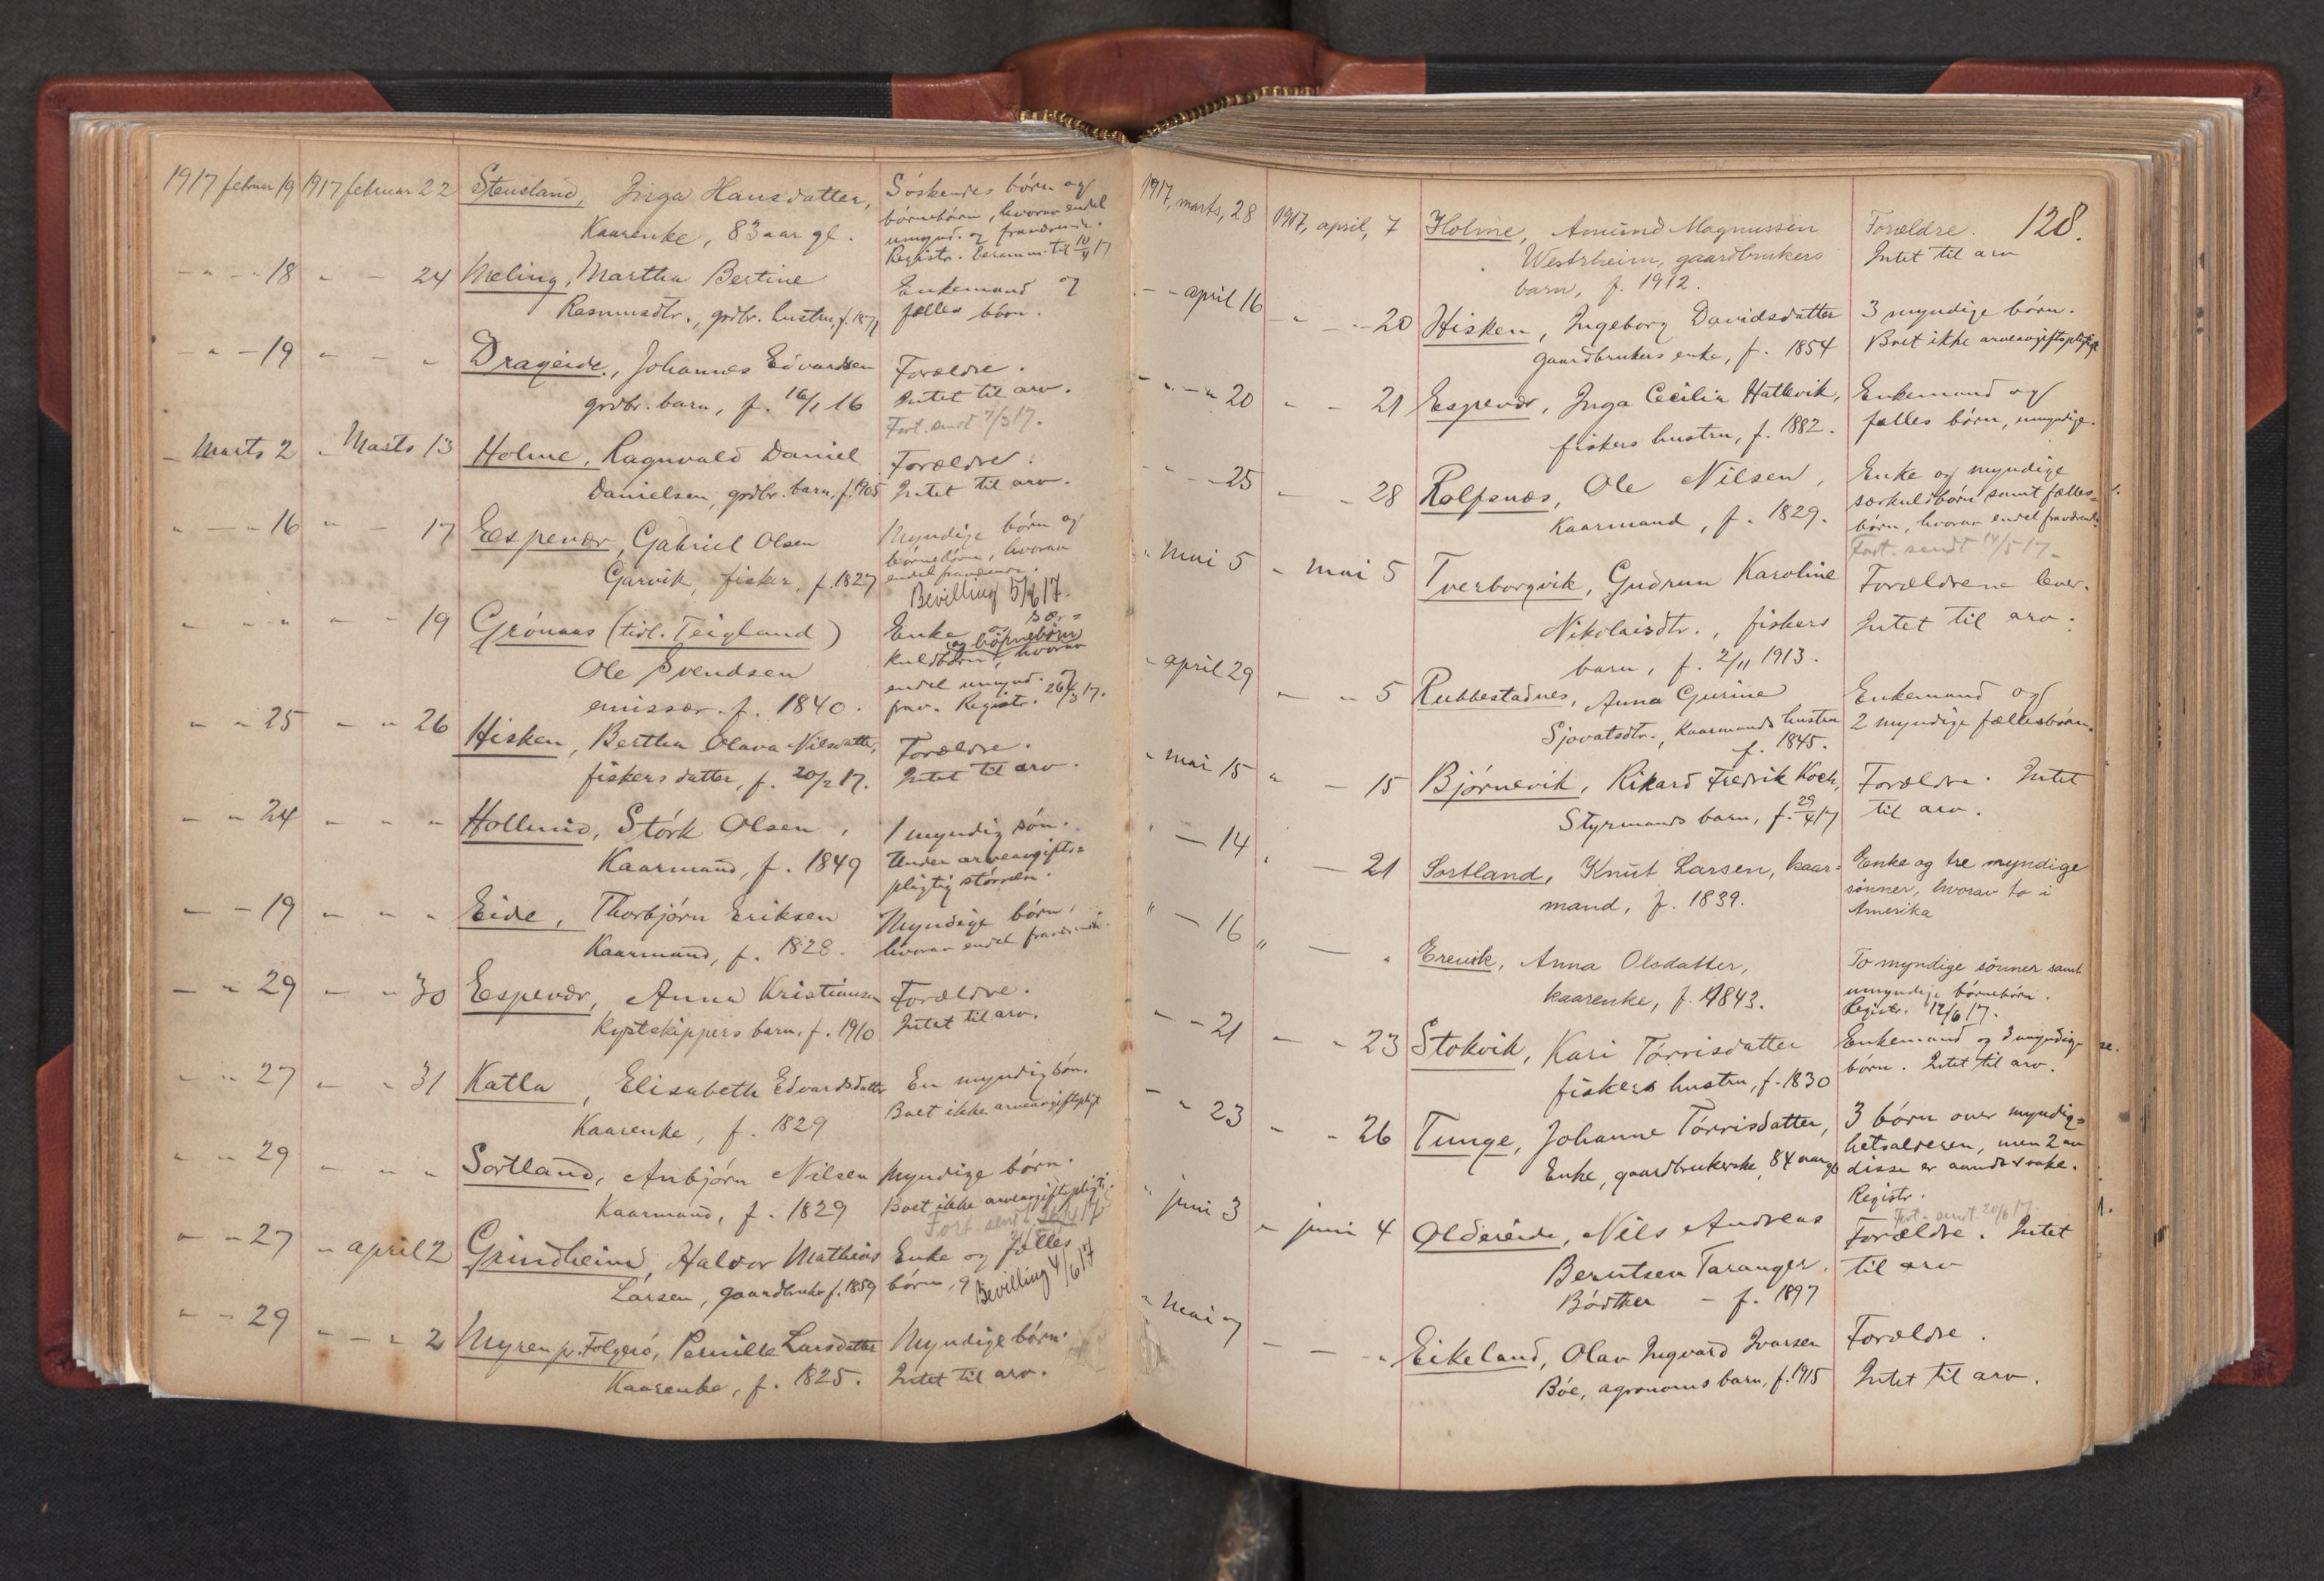 1917 februar 19 1917 februar 22 Stensland, Inga Hansdatter, Søskendes børn og
Kaarenke, 83 aar gl. børnebørn, hvorav endel
umynd. og fraværende.
Registr. beramm. til 10/4 17
- " - 18 " - 24 Meling, Martha Bertine Enkemand og
Rasmusdtr., grdbr. hustru, f. fælles børn.
- " - 19 " - " Drageide, Johannes Edvardsen Forældre.
grdbr. barn, f. 16/1 16 Intet til arv.
Fort. sendt 7/3 17.
- Marts 2 - Marts 13 Holme, Ragnvald Daniel Forældre.
Danielsen, grdbr. barn, f. 1905 Intet til arv.
" - " 16 " - 17 Espevær, Gabriel Olsen Myndige børn og
Garvik, fisker, f. 1827 børnebørn, hvorav
endel fraværende.
Bevilling 5/6 17.
" - " " - " 19 Grönnaas (tidl. Teigland) Enke og sær=
og børnebørn
Ole Svendsen kuldbørn, hvorav
emissær. f. 1840. endel umynd. og
frav. Registr. 26/3 17.
- " 25 - " 26 Hisken, Bertha Olava Nilsdatter, Forældre.
fiskers datter, f. 20/2 17. Intet til arv.
- " 24 - " " Hollund, Störk Olsen, 1 myndig søn.
Kaarmand, f. 1849 Under arveavgifts=
pligtig størrelse.
- - 19 - " " Eide, Thorbjørn Eriksen Myndige børn,
Kaarmand, f. 1828. hvorav endel fraværende.
- " 29 - " 30 Espevær, Anna Kristiansen Forældre.
Kystskippers barn. f. 1910 Intet til arv.
- " 27 - " 31 Katla, Elisabeth Edvardsdatter En myndig søn.
Kaarenke, f. 1829 Boet ikke arveavgiftspligt
- " 29 - " " Sortland, Anbjørn Nilsen Myndige børn.
Kaarmand, f. 1829 Boet ikke arveavgiftspligti
Fort. sendt
" - 27 - april 2 Grindheim, Haldor Mathias Enke og fælles
Larsen, gaardbruker f. 1859 børn, 9 Bevilling 4/6 17
- - 29 - - " 2 Myren pr. Folgerö, Pernille Larsdatter Myndige børn.
Kaarenke, f. 1825. Intet til arv.
128.
1917, marts, 28 1917, april, 7 Holme, Amund Magnussen Forældre.
Westrheim, gaardbrukers Intet til arv
barn, f. 1912.
- - april 16 " - - 20 Hisken, Ingeborg Davidsdatter 3 myndige børn.
gaardbrukers enke, f. 1854 Boet ikke arveavgiftspligtig
- " - " 20 " - 21 Espevær, Inga Cecilia Hatlevik, Enkemand og
fiskers hustru, f. 1882. fælles børn, umyndige.
- " - 25 - - 28 Rolfsnes, Ole Nilsen, Enke og myndige
Kaarmand, f. 1829. særkuldbørn samt fælles=
børn, hvorav endel fraværende.
Fort. sendt 14/5 17.
" Mai 5 - mai 5 Tverborgvik, Gudrun Karoline Forældrene lever.
Nikolaisdtr., fiskers Intet til arv.
barn, f. 2/11 1913.
- april 29 - - 5 Rubbestadnes, Anna Gurine Enkemand og
Sjovatsdtr., Kaarmands hustru 2 myndige fællesbørn.
f. 1845.
- mai 15 " - 15 Bjørnevik, Rikard Fredrik Koch, Forældre. Intet
Styrmands barn, f. 29/4 17 til arv.
" - 14 " - 21 Sortland, Knut Larsen, kaar= Enke og tre myndige
mand, f. 1839. sønner, hvorav to i
Amerika
" - 16 " - " Erevik, Anna Olsdatter, To myndige sønner samt
kaarenke, f. 1843. umyndige børnebørn.
Registr. 12/6 17.
- - 21 - " 23 Stokvik, Kari Tørrisdatter Enkemand og 3 myndige
fiskers hustru, f. 1830 børn. Intet til arv.
- " 23 - - 26 Tunge, Johanne Tørrisdatter, 3 børn over myndig=
Enke, gaardbrukerske, 84 aar gl hetsalderen, men 2 av
disse er aandssvake.
Registr.
Fort. sendt 20/6 17.
" juni 3 " juni 4 Oldereide, Nils Andreas Forældre. Intet
Berntsen Taranger. til arv
Bödker - f. 1897
" Mai 7 - - " Eikeland, Olav Ingvard Ivarsen Forældre.
Böe, agronoms barn, f. 1915 Intet til arv.